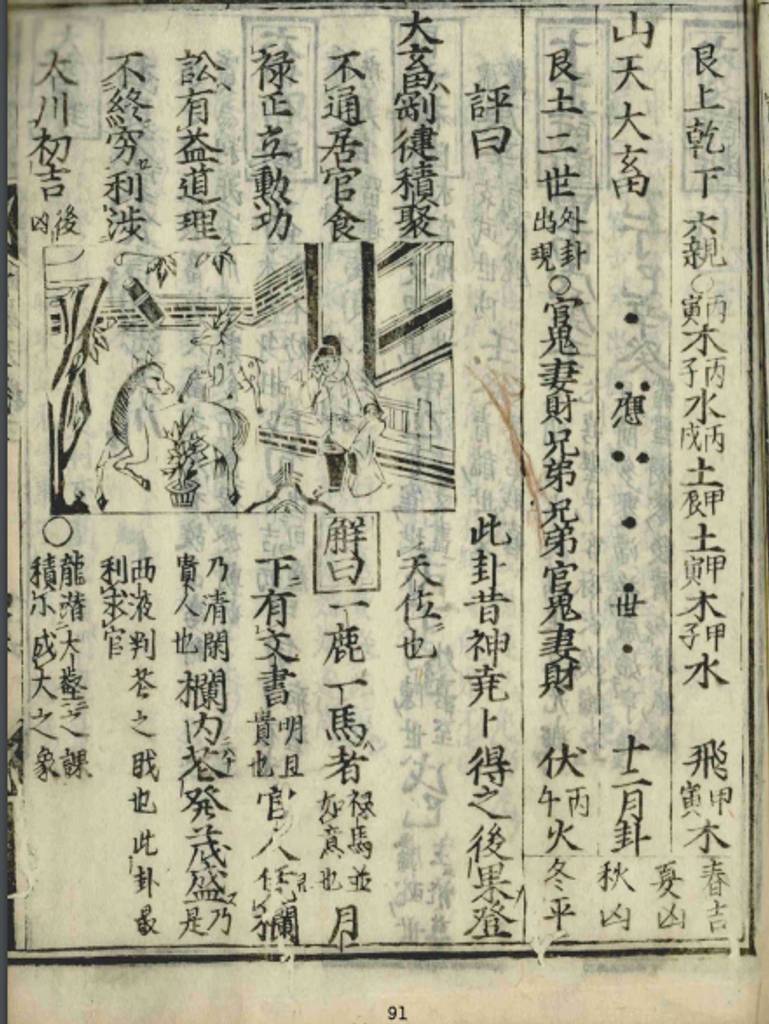 艮上乾下 六親○丙寅木丙子水丙戌土甲辰土甲寅木甲子水 飛甲寅木 春吉 夏凶
山天大畜 應 世 十二月卦 秋凶
艮土二世 外卦出現○官鬼妻財兄弟兄弟官鬼妻財 伏丙午火 冬平
評曰 此卦昔神堯卜得之後果登
大畜剛健積聚 天位也
不通居官食 解曰 一鹿一馬者 祿馬並如意也 月
祿正立勳功 下有文書 明且貴也 官人凭欄
訟有益道理 乃清閑貴人也 欄内花發茂盛 乃是
不終穷利涉 西液判花之戝也此卦最利求官
大川初吉後凶
○龍潛大壑之課
積小成大之象
91